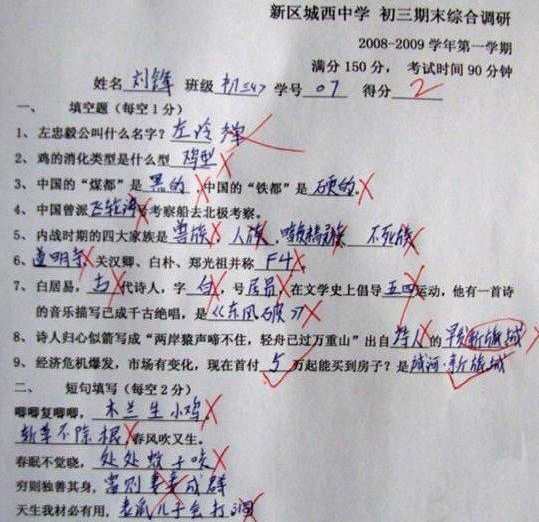 新区城西中学 初三期末综合调研
2008-2009 学年第一学期
满分 150 分, 考试时间 90 分钟
姓名 刘锋 班级 初三47 学号 07 得分 2
一、 填空题（每空 1 分）
1、左忠毅公叫什么名字？左冷禅
2、鸡的消化类型是什么型 鸡型
3、中国的“煤都”是 黑的 ,中国的“铁都”是 硬的。
4、中国曾派飞轮海号考察船去北极考察。
5、内战时期的四大家族是 兽族、人族、暗夜精灵族 不死族
6、道明寺、关汉卿、白朴、郑光祖并称 F4。
7、白居易，古代诗人，字 白，号 居易，在文学史上倡导五四运动，他有一首诗
的音乐描写已成千古绝唱，是《东风破》
8、诗人归心似箭写成“两岸猿声啼不住，轻舟已过万重山”出自 诗人 的 新旅城
9、经济危机爆发，市场有变化，现在首付 5 万起能买到房子？是 城河·新旅城
二、 短句填写（每空 2 分）
唧唧复唧唧，木兰生小鸡
斩草不除根，春风吹又生。
春眠不觉晓，处处蚊子咬
穷则独善其身，富则妻妾成群
天生我材必有用，老鼠儿子会打洞